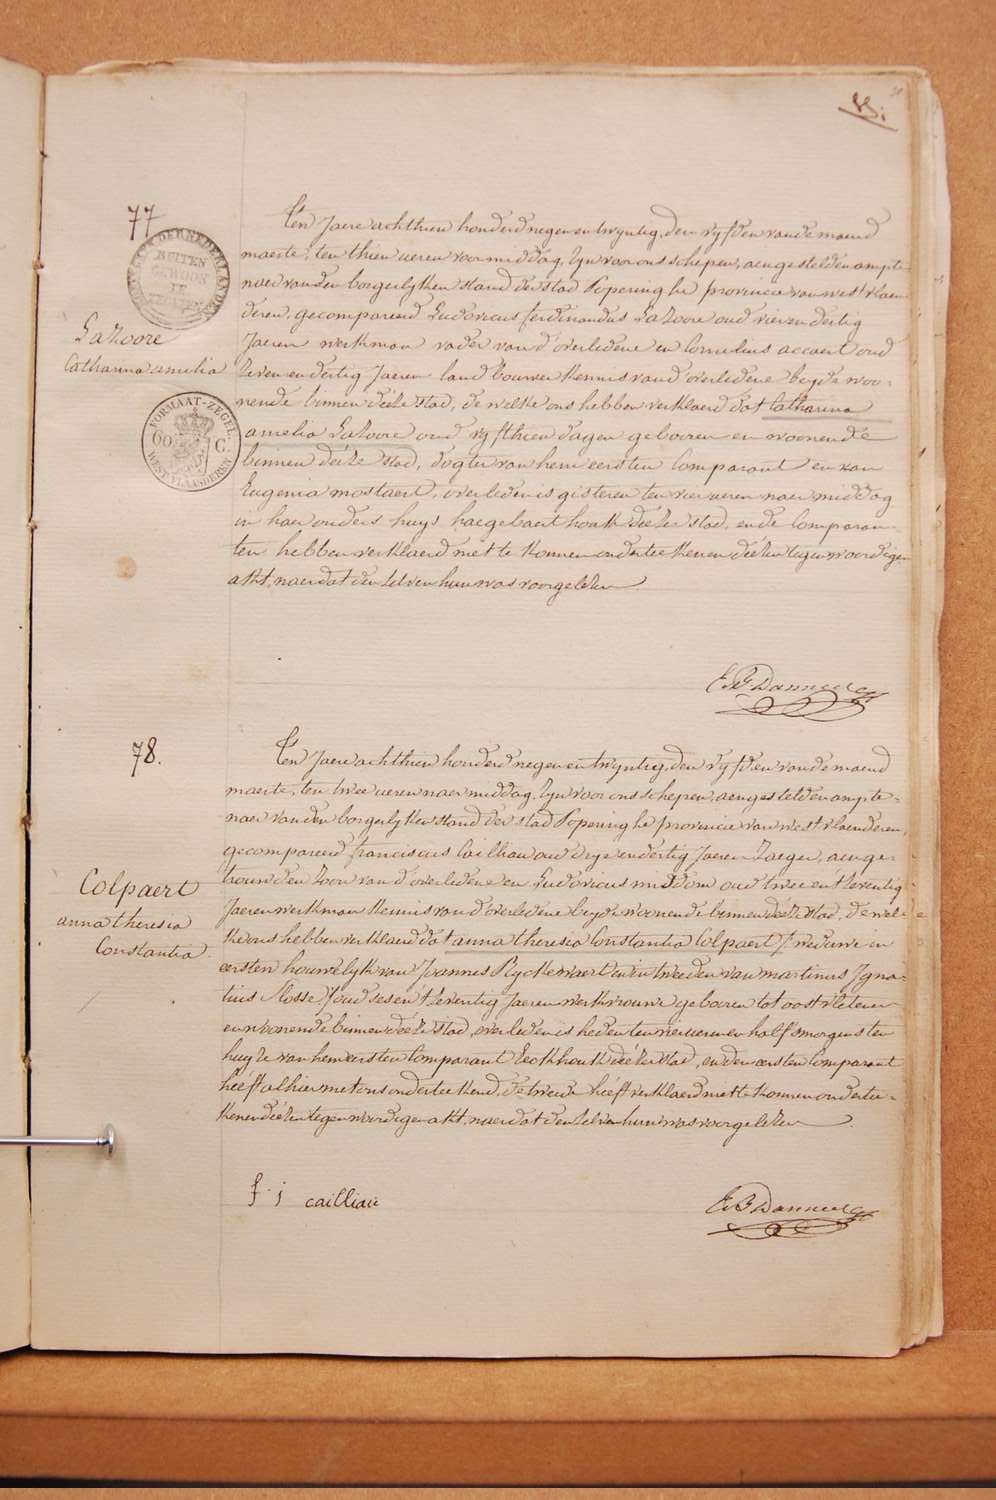 77
Ten Jaere achthien honderd negen en twyntig, den vyfden vande maend
maerte, ten thien ueren voormiddag, Zyn voor ons schepen, aengestelden ampte-
naer van den borgerlyken stand der stad Poperinghe provincie van west vlaen-
deren, gecompareerd Ludovicus ferdinandus LaHoore oud vier en dertig
Jaeren werkman vader van d'overledene en Cornelius accaert oud
Zeven en dertig Jaeren landbouwer Kennis van d'overledene beyde woo-
nende binnen deéze stad, de welke ons hebben verklaerd dat Catharina
amelia LaHoore oud vyfthien dagen gebooren en woonende
binnen deéze stad, dogter van hem eersten Comparant en van
Eugenia mostaert, overleden is gisteren ten vier ueren naer middag
in haer ouders huys haegebaert hoek deézer stad, ende Comparan-
ten hebben verklaerd niet te konnen onderteekenen deézen tegenwoordigen
akt, naer dat den zelven hun was voorgelezen
LaHoore
Catharina amelia
DER NEDERLANDEN
BUITEN
GEWOON
FORMAAT-ZEGEL.
60 C.
WEST-VLAANDEREN
78.
Ten Jaere achthien honderd negen en twyntig, den vyfden vande maend
maerte, ten twee ueren naermiddag, Zyn voor ons schepen, aengestelden ampte-
naer van den borgerlyken stand der stad Poperinghe provincie van west vlaenderen,
gecompareerd franciscus Cailliau oud drye en dertig Jaeren Zaeger, aenge-
trouwden Zoon van d'overledene en Ludovicus middom oud twee en t'Zeventig
Jaeren werkman Kennis van d'overledene beyde woonende binnen deéze stad, de wel-
ke ons hebben verklaerd dat anna theresia Constantia Colpaert weduwe in
eersten houwelyk van Joannes Ryckewaert en in tweeden van martinus Igna-
tius Mosse oud ses en t'Zeventig Jaeren werkvrouwe gebooren tot oostvleteren
en woonende binnen deéze stad, overleden is heden ten ueren en half smorgens ten
huyze van hem eersten Comparant Eeckhout deézer stad, enden eersten Comparant
heéft alhier met ons onderteekend, de tweede heéft verklaerd niet te konnen onderteé-
kenen deézen tegenwoordigen akt, naer dat den zelven hun was voorgelezen
Colpaert
anna theresia
Constantia
f. j cailliau